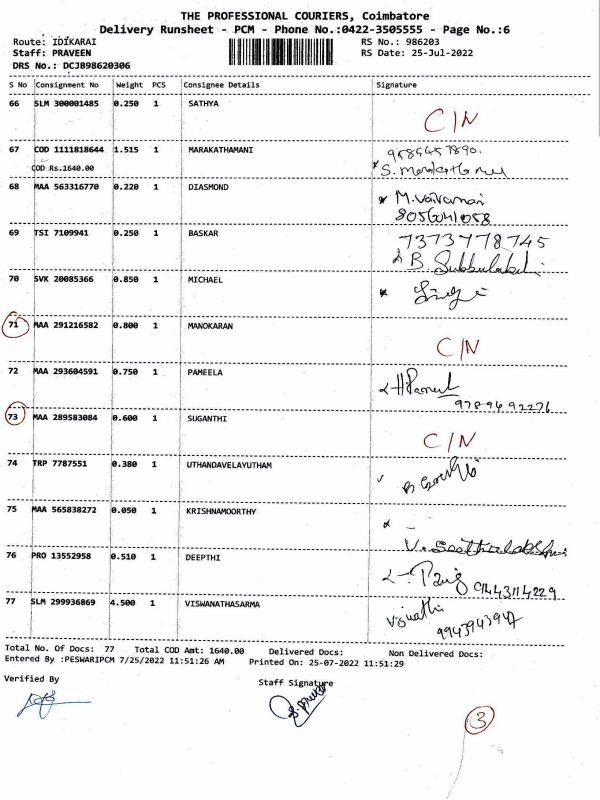 THE PROFESSIONAL COURIERS, Coimbatore
Delivery Runsheet - PCM - Phone No.:0422-3505555 - Page No.:6
Route: IDIKARAI RS No.: 986203
Staff: PRAVEEN RS Date: 25-Jul-2022
DRS No.: DCJB98620306
S No Consignment No Weight PCS Consignee Details Signature
66 SLM 300001485 0.250 1 SATHYA C/N
67 COD 1111818644 1.515 1 MARAKATHAMANI
COD Rs.1640.00
68 MAA 563316770 0.220 1 DIASMOND
8056041058
69 TSI 7109941 0.250 1 BASKAR 7373778745
B. Subbulakshmi
70 SVK 20085366 0.850 1 MICHAEL
71 MAA 291216582 0.800 1 MANOKARAN C/N
72 MAA 293604591 0.750 1 PAMEELA
9789692276
73 MAA 289583084 0.600 1 SUGANTHI C/N
74 TRP 7787551 0.380 1 UTHANDAVELAYUTHAM
75 MAA 565838272 0.050 1 KRISHNAMOORTHY
76 PRO 13552958 0.510 1 DEEPTHI
9443114229
77 SLM 299936869 4.500 1 VISWANATHASARMA
9943943947
Total No. Of Docs: 77 Total COD Amt: 1640.00 Delivered Docs: Non Delivered Docs:
Entered By :PESWARIPCM 7/25/2022 11:51:26 AM Printed On: 25-07-2022 11:51:29
Verified By Staff Signature
3